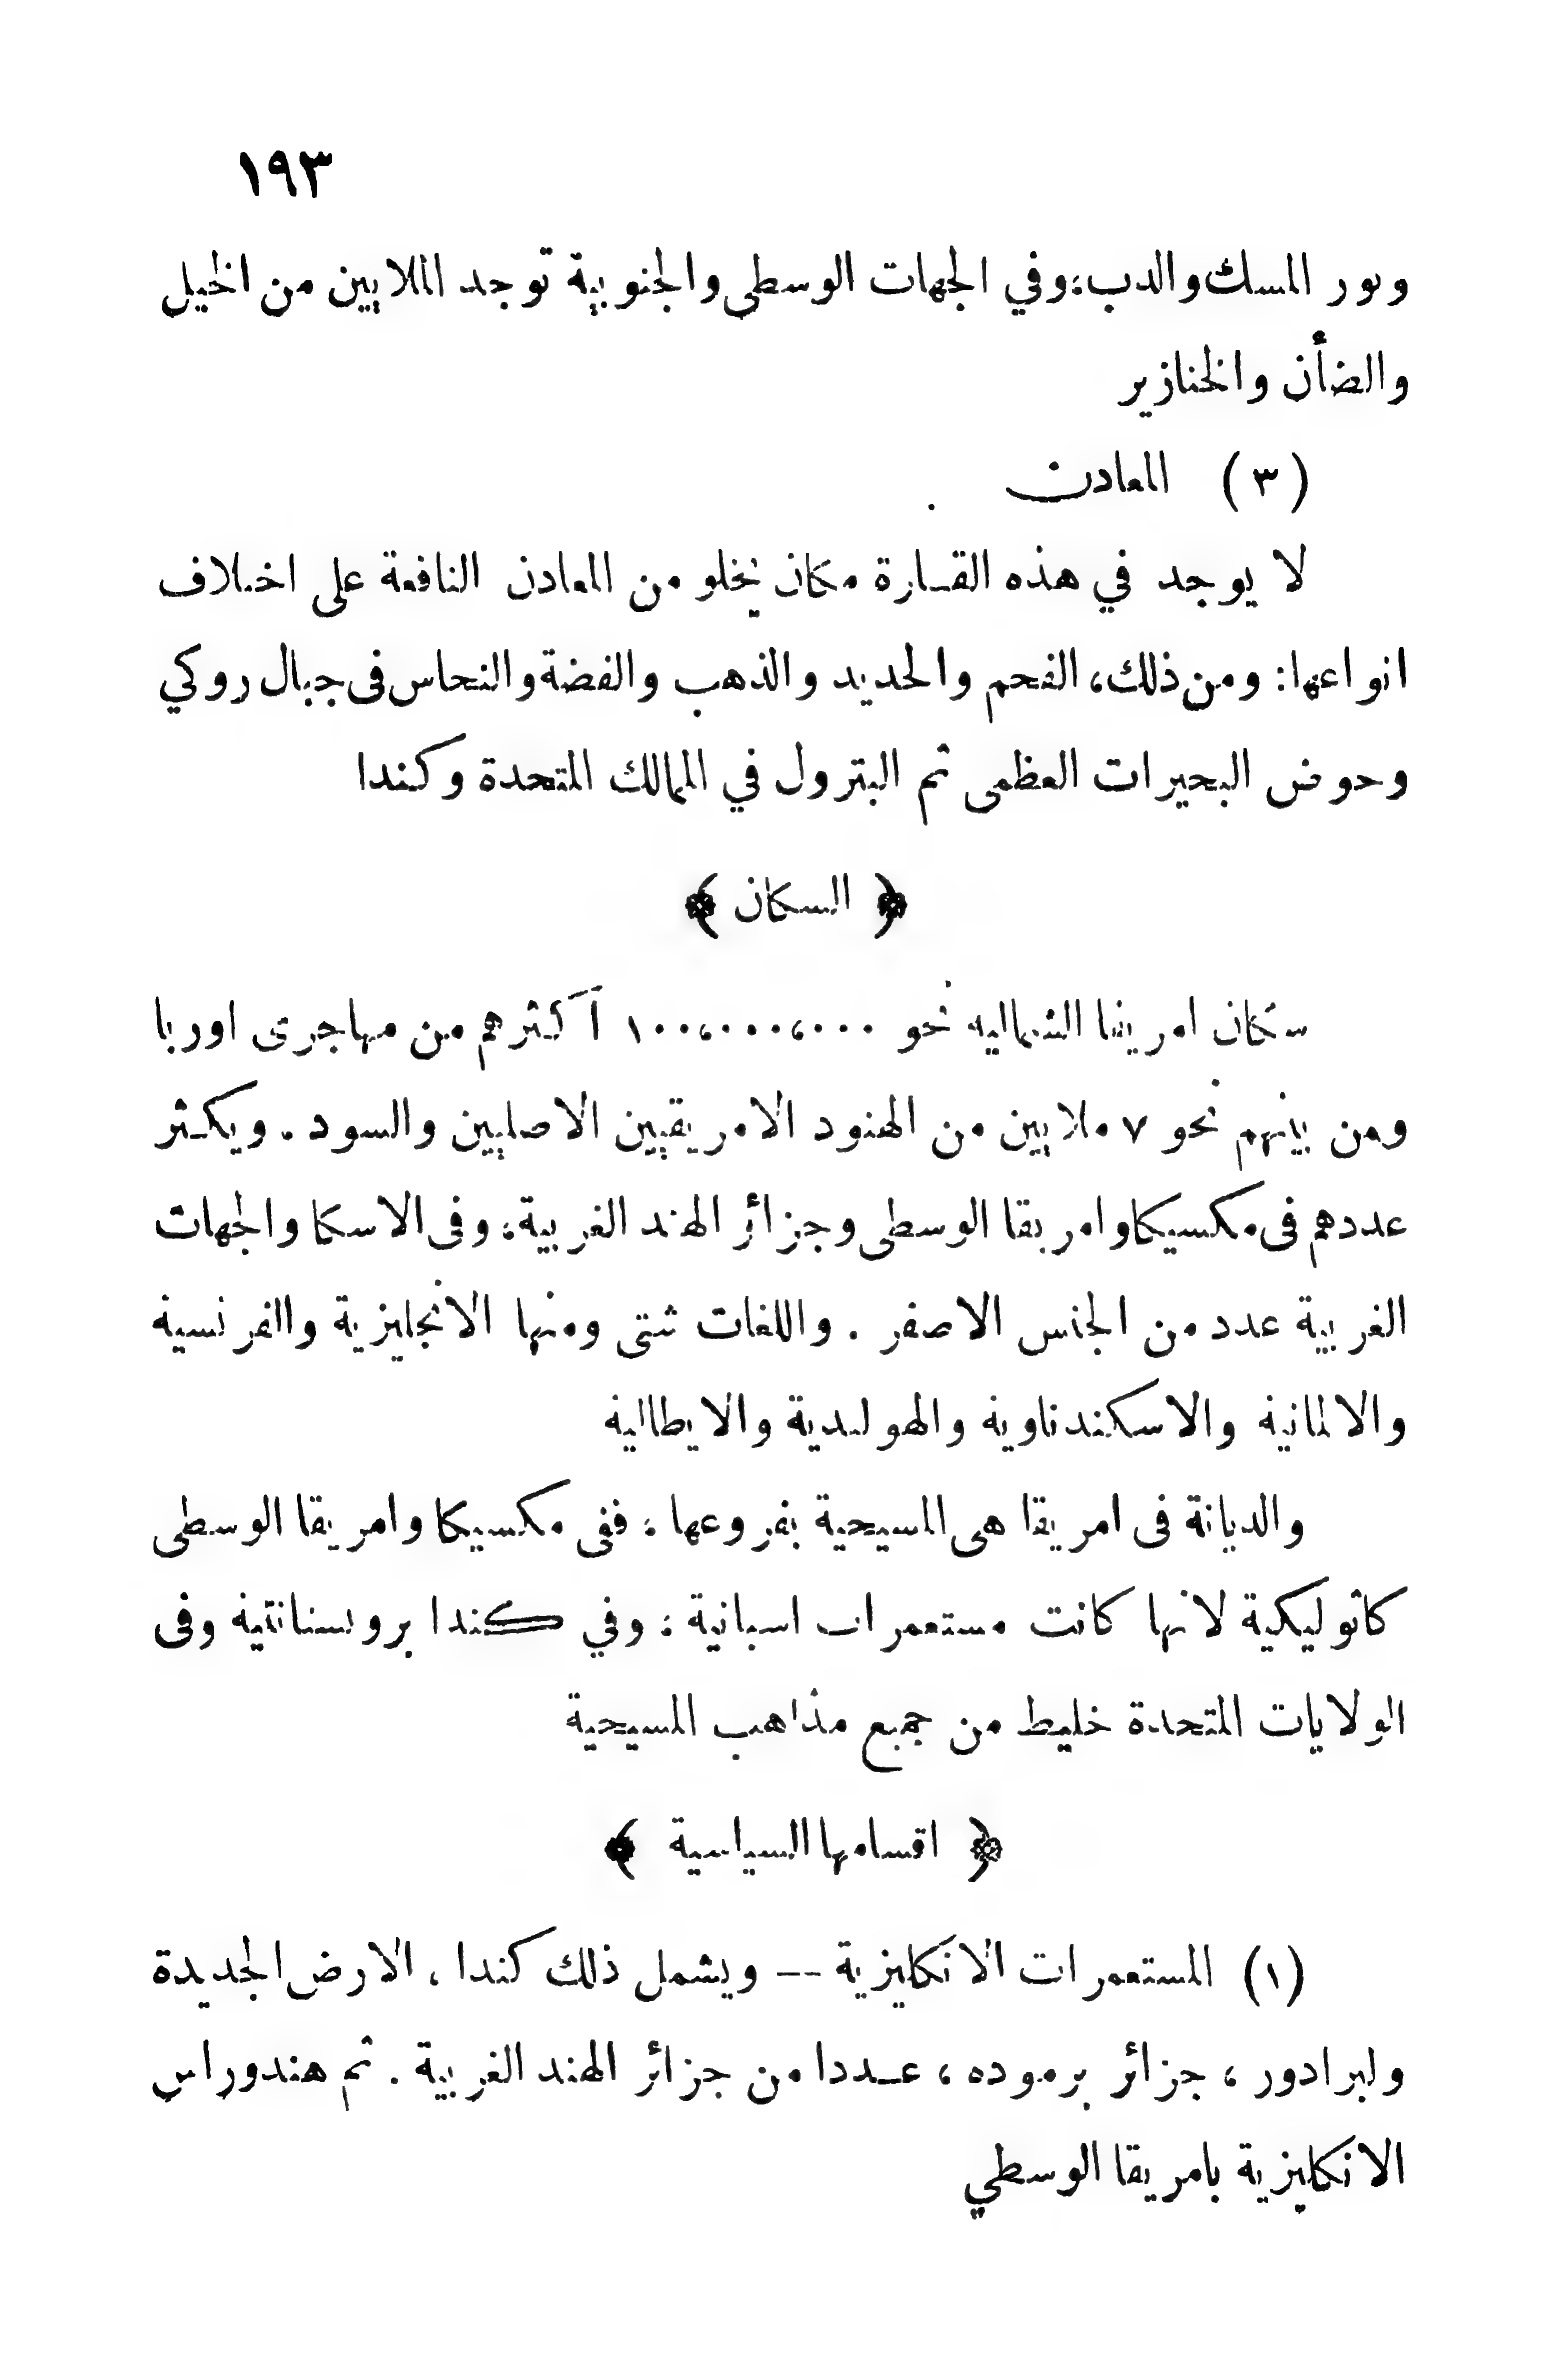 ١٩٣
وثور المسك والدب؛ وفي الجهات الوسطى والجنوبية توجد الملايين من الخيل
والضأن والخنازير
(٣) المعادن
لا يوجد في هذه القارة مكان يخلو من المعادن النافعة على اختلاف
انواعها: ومن ذلك، الفحم والحديد والذهب والفضة والنحاس فى جبال روكي
وحوض البحيرات العظمى ثم البترول في الممالك المتحدة وكندا
﴿ السكان ﴾
سكان امريقا الشمالية نحو ١٠٠،٠٠٠،٠٠٠ أكثرهم من مهاجرى اوربا
ومن بينهم نحو ٧ ملايين من الهنود الامريقيين الاصليين والسود . ويكثر
عددهم فى مكسيكا وامريقا الوسطى وجزائر الهند الغربية؛ وفى الاسكا والجهات
الغربية عدد من الجنس الاصفر . واللغات شتى ومنها الانجليزية والفرنسية
والالمانية والاسكندناوية والهولندية والايطالية
والديانة فى امريقا هى المسيحية بفروعها ؛ ففى مكسيكا وامريقا الوسطى
كاثوليكية لانها كانت مستعمرات اسبانية ؛ وفي كندا بروتستانتية وفى
الولايات المتحدة خليط من جميع مذاهب المسيحية
﴿ اقسامها السياسية ﴾
(١) المستعمرات الانكليزية -- ويشمل ذلك كندا ، الارض الجديدة
ولبرادور ، جزائر برموده ، عددا من جزائر الهند الغربية . ثم هندوراس
الانكليزية بامريقا الوسطي